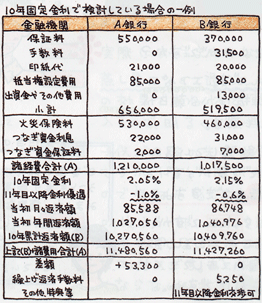 10年固定金利で検討している場合の一例
金融機関 A銀行 B銀行
保証料 550,000 370,000
手数料 31,500
印紙代 21,000 20,000
抵当権設定費用 85,000 85,000
出資金やその他費用 13,000
小計 656,000 519,500
火災保険料 530,000 460,000
つなぎ資金利息 22,000 31,000
つなぎ資金保証料 2,000 7,000
諸経費合計(A) 1,210,000 1,017,500
10年固定金利 2.05% 2.15%
11年目以降金利優遇 -1.0% -0.6%
当初月返済額 85,588 86,748
当初年間返済額 1,027,056 1,040,976
10年累計返済額(B) 10,270,560 10,409,760
上記(B)+諸費用合計(A) 11,480,560 11,427,260
差額 +53,300 0
繰上げ返済手数料 0 5250
その他特筆 11年目以降金利交渉可